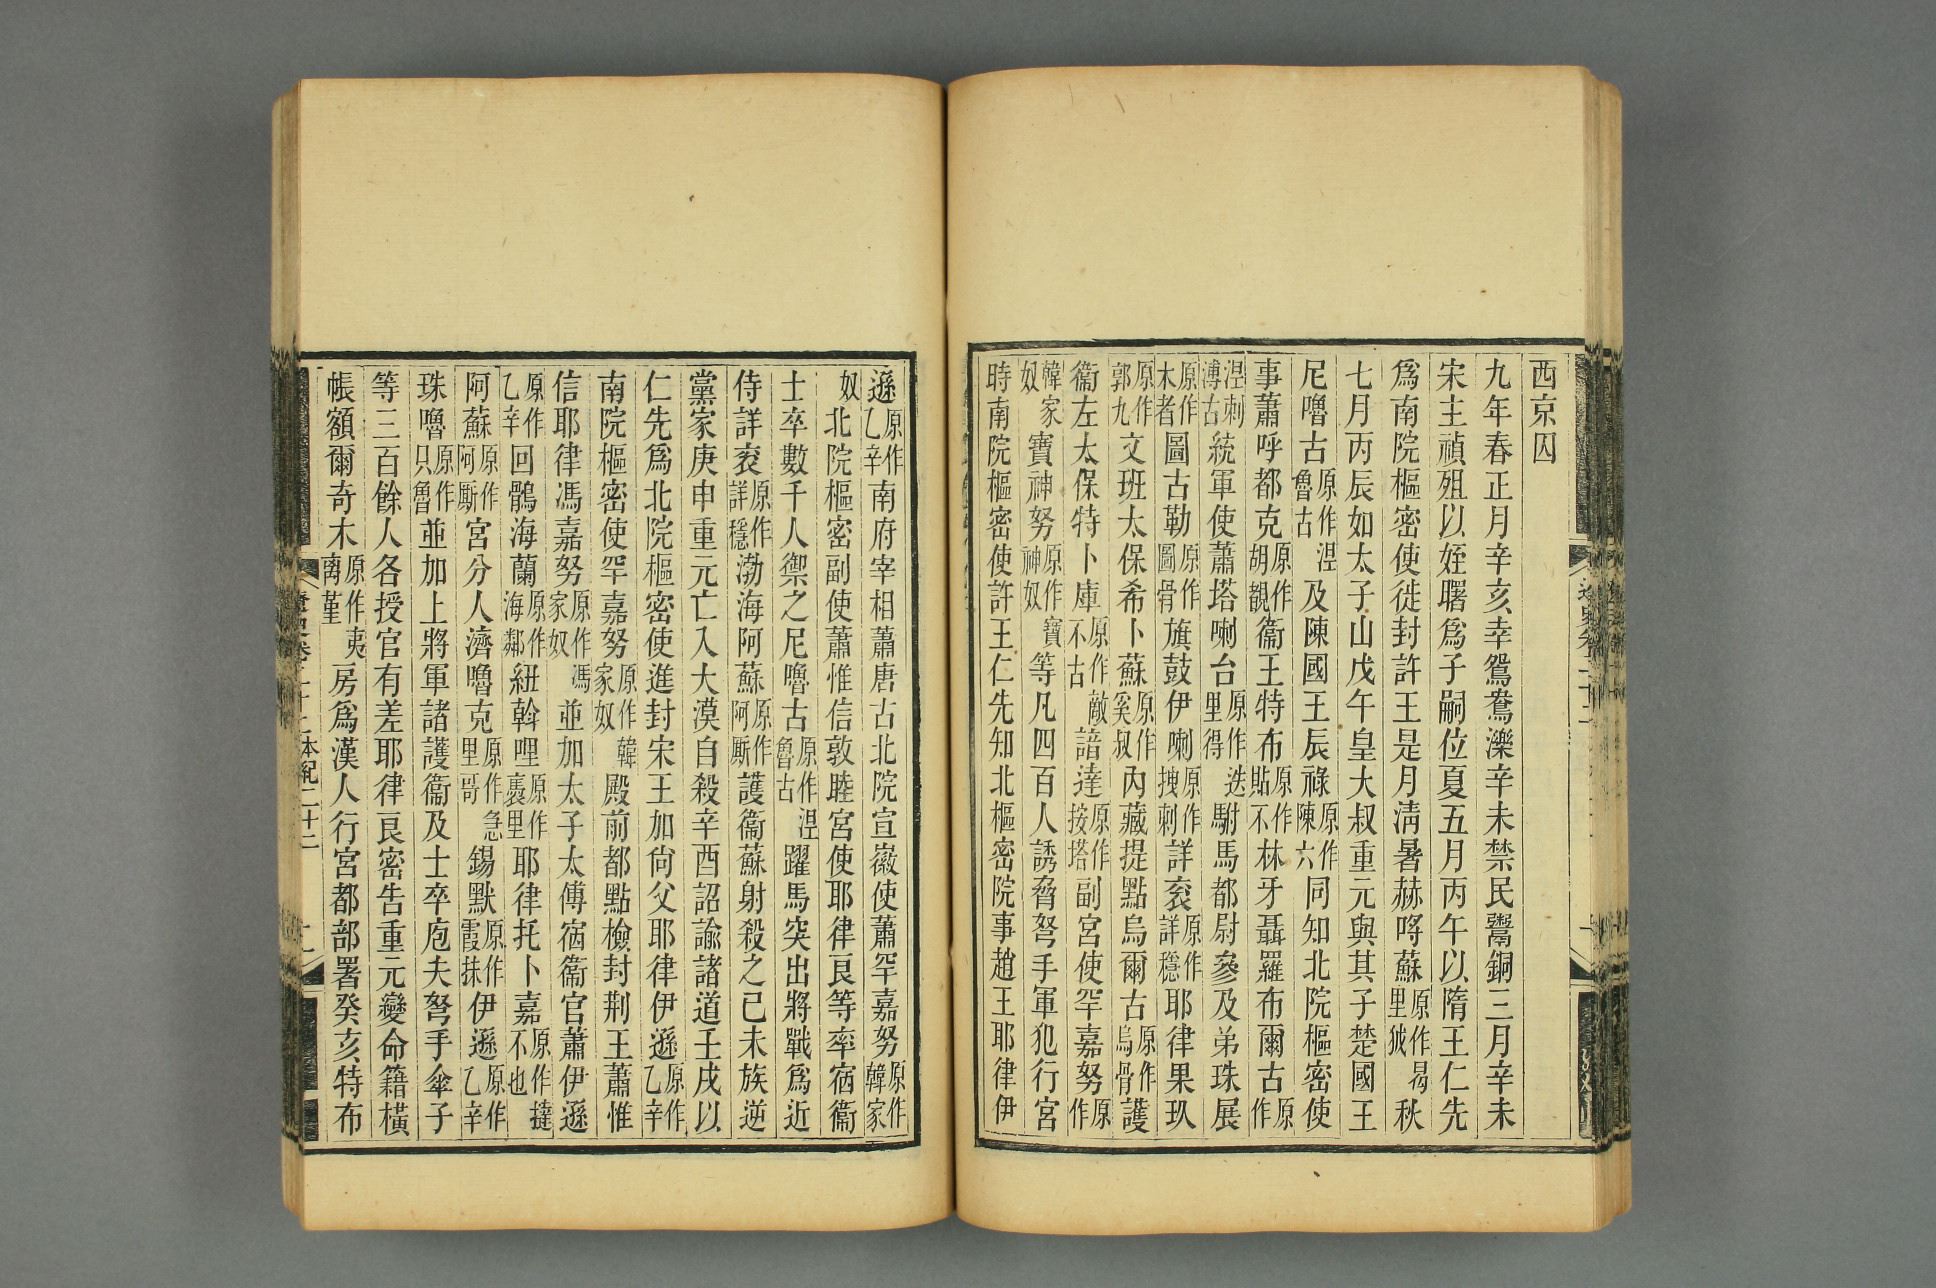 西京囚
九年春正月辛亥幸鴛鴦濼辛未禁民鬻銅三月辛未
宋主禎殂以姪曙爲子嗣位夏五月丙午以隋王仁先
爲南院樞密使徙封許王是月淸暑赫嘑蘇原作曷里狘秋
七月丙辰如太子山戊午皇大叔重元與其子楚國王
尼嚕古原作涅魯古及陳國王辰祿原作陳六同知北院樞密使
事蕭呼都克原作胡覩衞王特布原作貼不林牙聶羅布爾古原作
涅剌溥古統軍使蕭塔喇台原作迭里得駙馬都尉參及弟珠展
原作朮者圖古勒原作圖骨旗鼓伊喇原作拽剌詳袞原作詳穩耶律果玖
原作郭九文班太保希卜蘇原作奚叔內藏提點烏爾古原作烏骨護
衞左太保特卜庫原作敵不古諳達原作按塔副宮使罕嘉努原作
韓家奴寶神努原作寶神奴等凡四百人誘脅弩手軍犯行宮
時南院樞密使許王仁先知北樞密院事趙王耶律伊
遜原作乙辛南府宰相蕭唐古北院宣徽使蕭罕嘉努原作韓家
奴北院樞密副使蕭惟信敦睦宮使耶律良等率宿衞
士卒數千人禦之尼嚕古原作涅魯古躍馬突出將戰爲近
侍詳袞原作詳穩渤海阿蘇原作阿厮護衞蘇射殺之己未族逆
黨家庚申重元亡入大漠自殺辛酉詔諭諸道壬戌以
仁先爲北院樞密使進封宋王加尙父耶律伊遜原作乙辛
南院樞密使罕嘉努原作韓家奴殿前都點檢封荆王蕭惟
信耶律馮嘉努原作馮家奴並加太子太傅宿衞官蕭伊遜
原作乙辛回鶻海蘭原作海鄰紐斡哩原作裹里耶律托卜嘉原作撻不也
阿蘇原作阿厮宮分人濟嚕克原作急里哥錫默原作霞抹伊遜原作乙辛
珠嚕原作只魯並加上將軍諸護衞及士卒庖夫弩手傘子
等三百餘人各授官有差耶律良密告重元變命籍橫
帳額爾奇木原作夷离堇房爲漢人行宮都部署癸亥特布
遼史卷二十二 本紀二十二